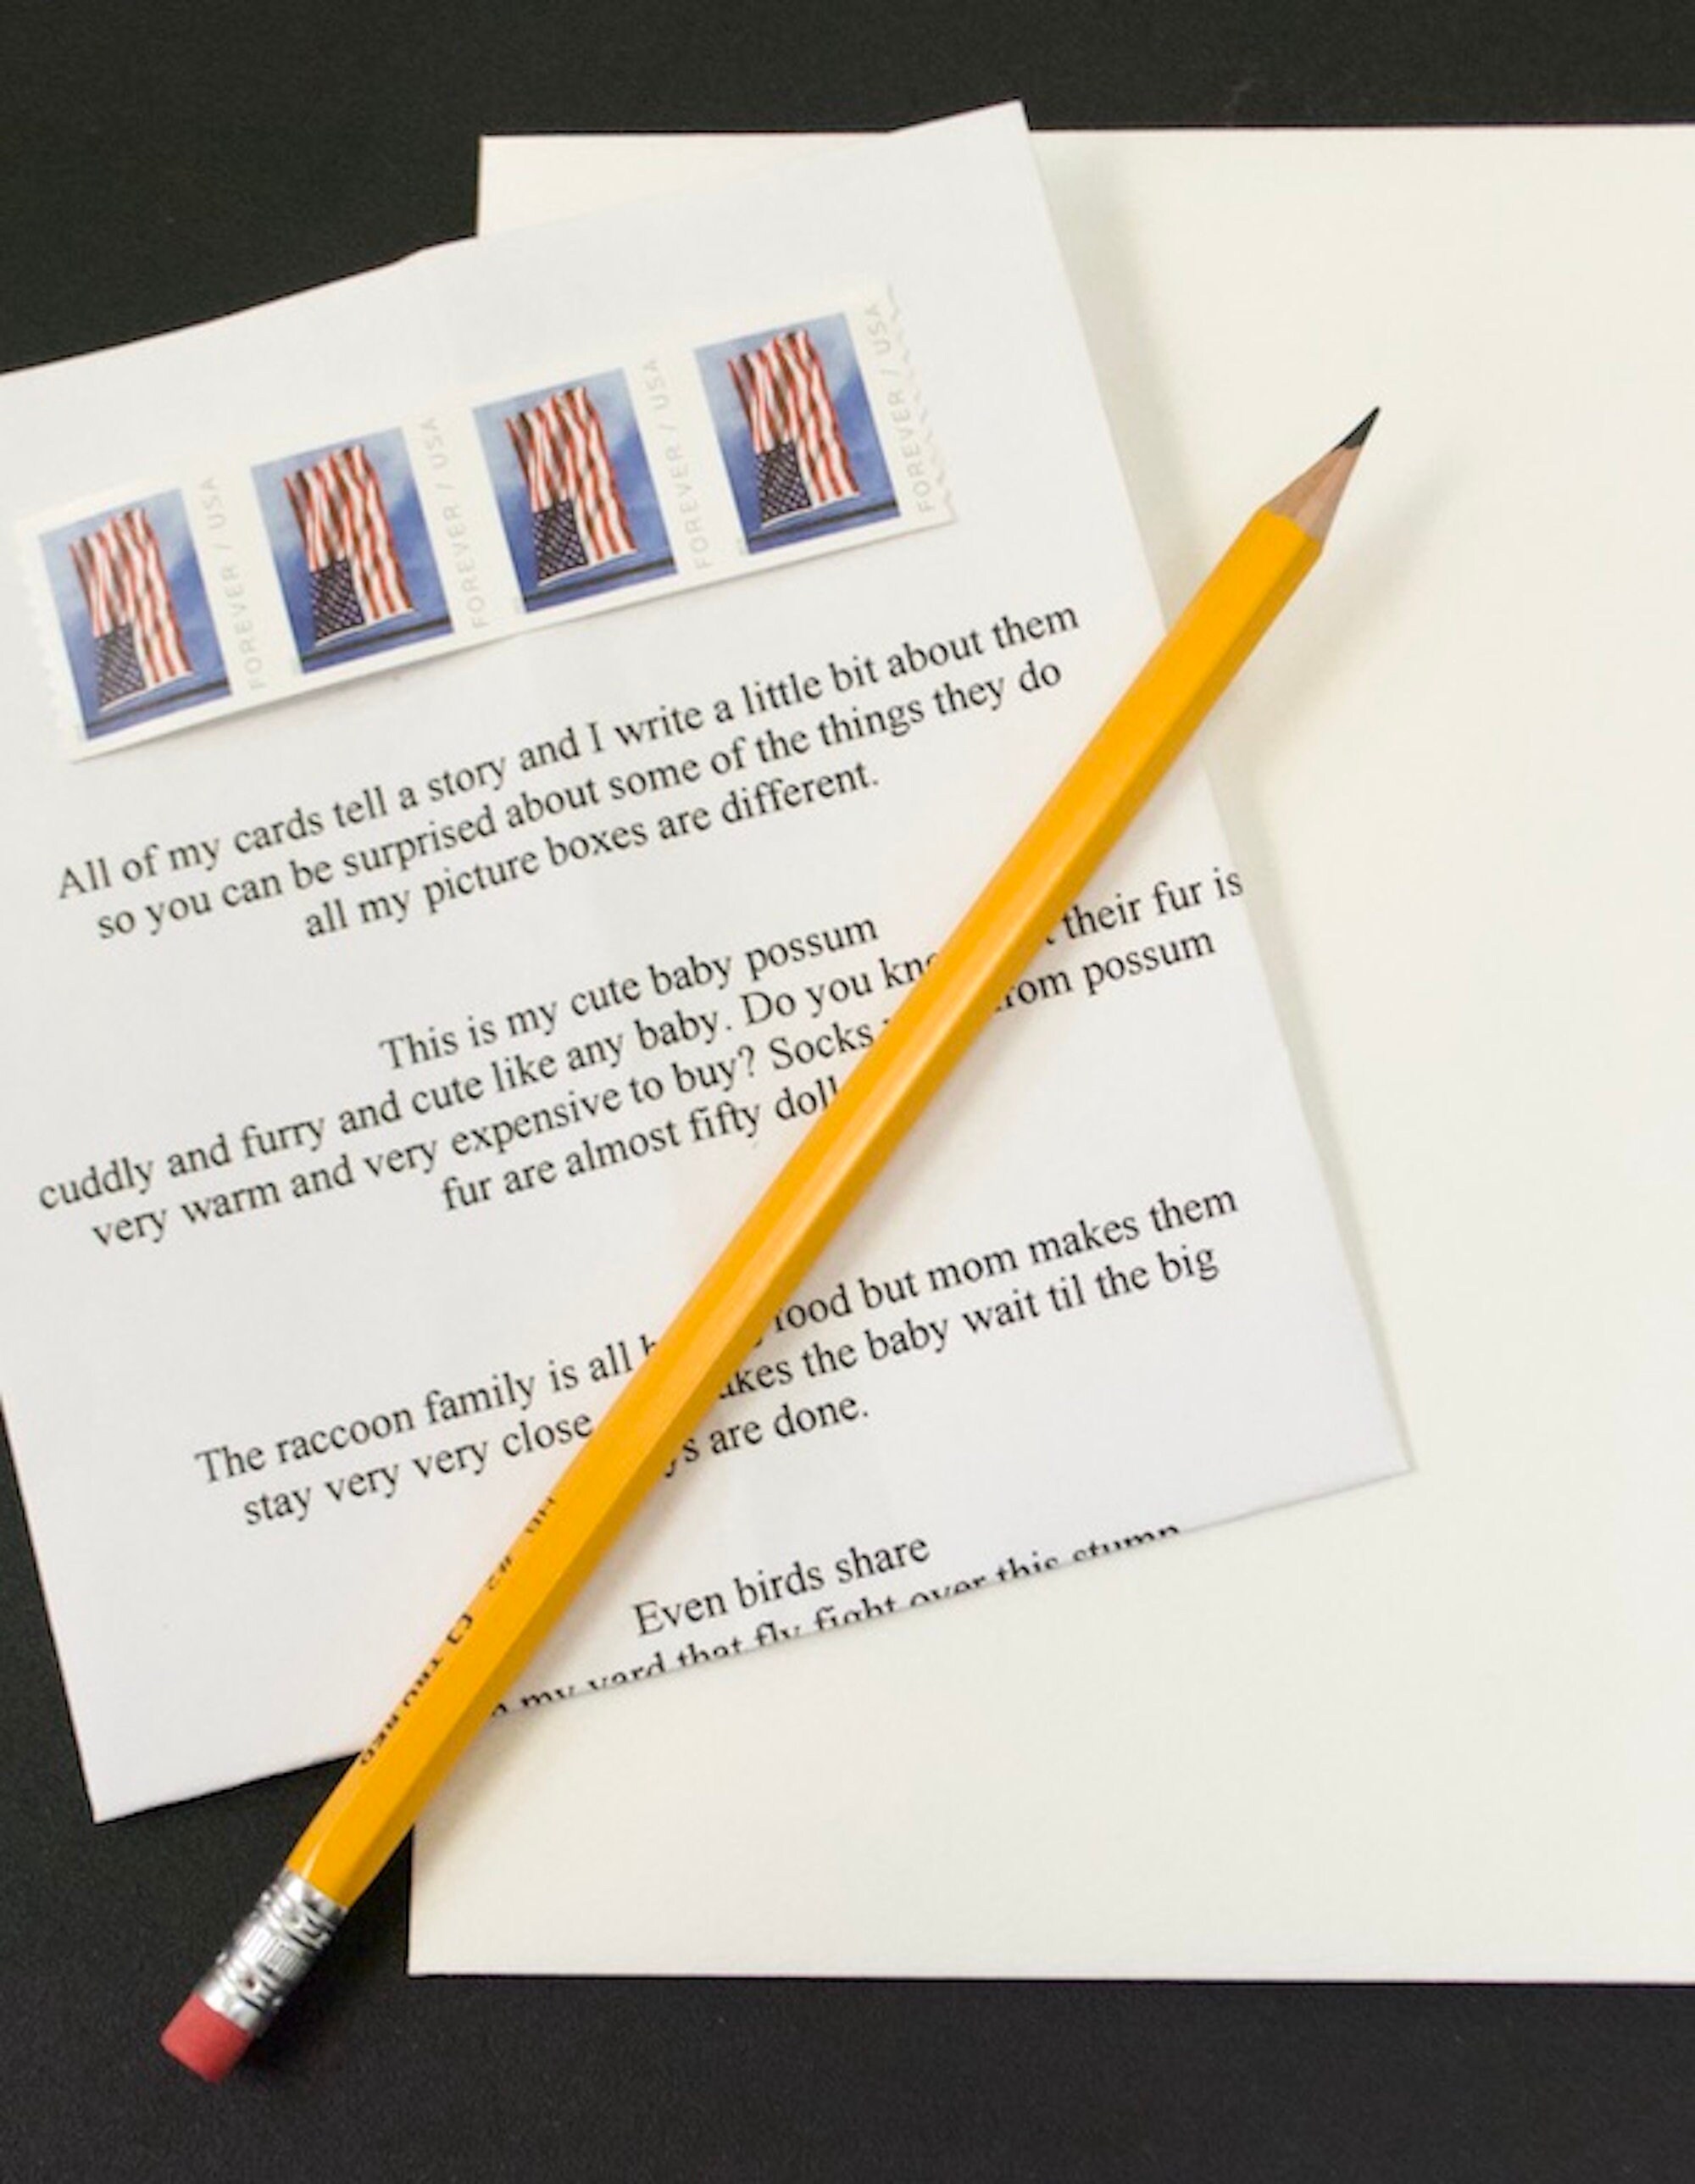 FOREVER / USA
FOREVER / USA
FOREVER / USA
FOREVER / USA
All of my cards tell a story and I write a little bit about them
so you can be surprised about some of the things they do
all my picture boxes are different.
This is my cute baby possum
cuddly and furry and cute like any baby. Do you their fur is
very warm and very expensive to buy? Socks possum
fur are almost fifty
The raccoon family is all but mom makes them
stay very very close the baby wait til the big
are done.
Even birds share
my yard that fly fight over this stump
TRU RED